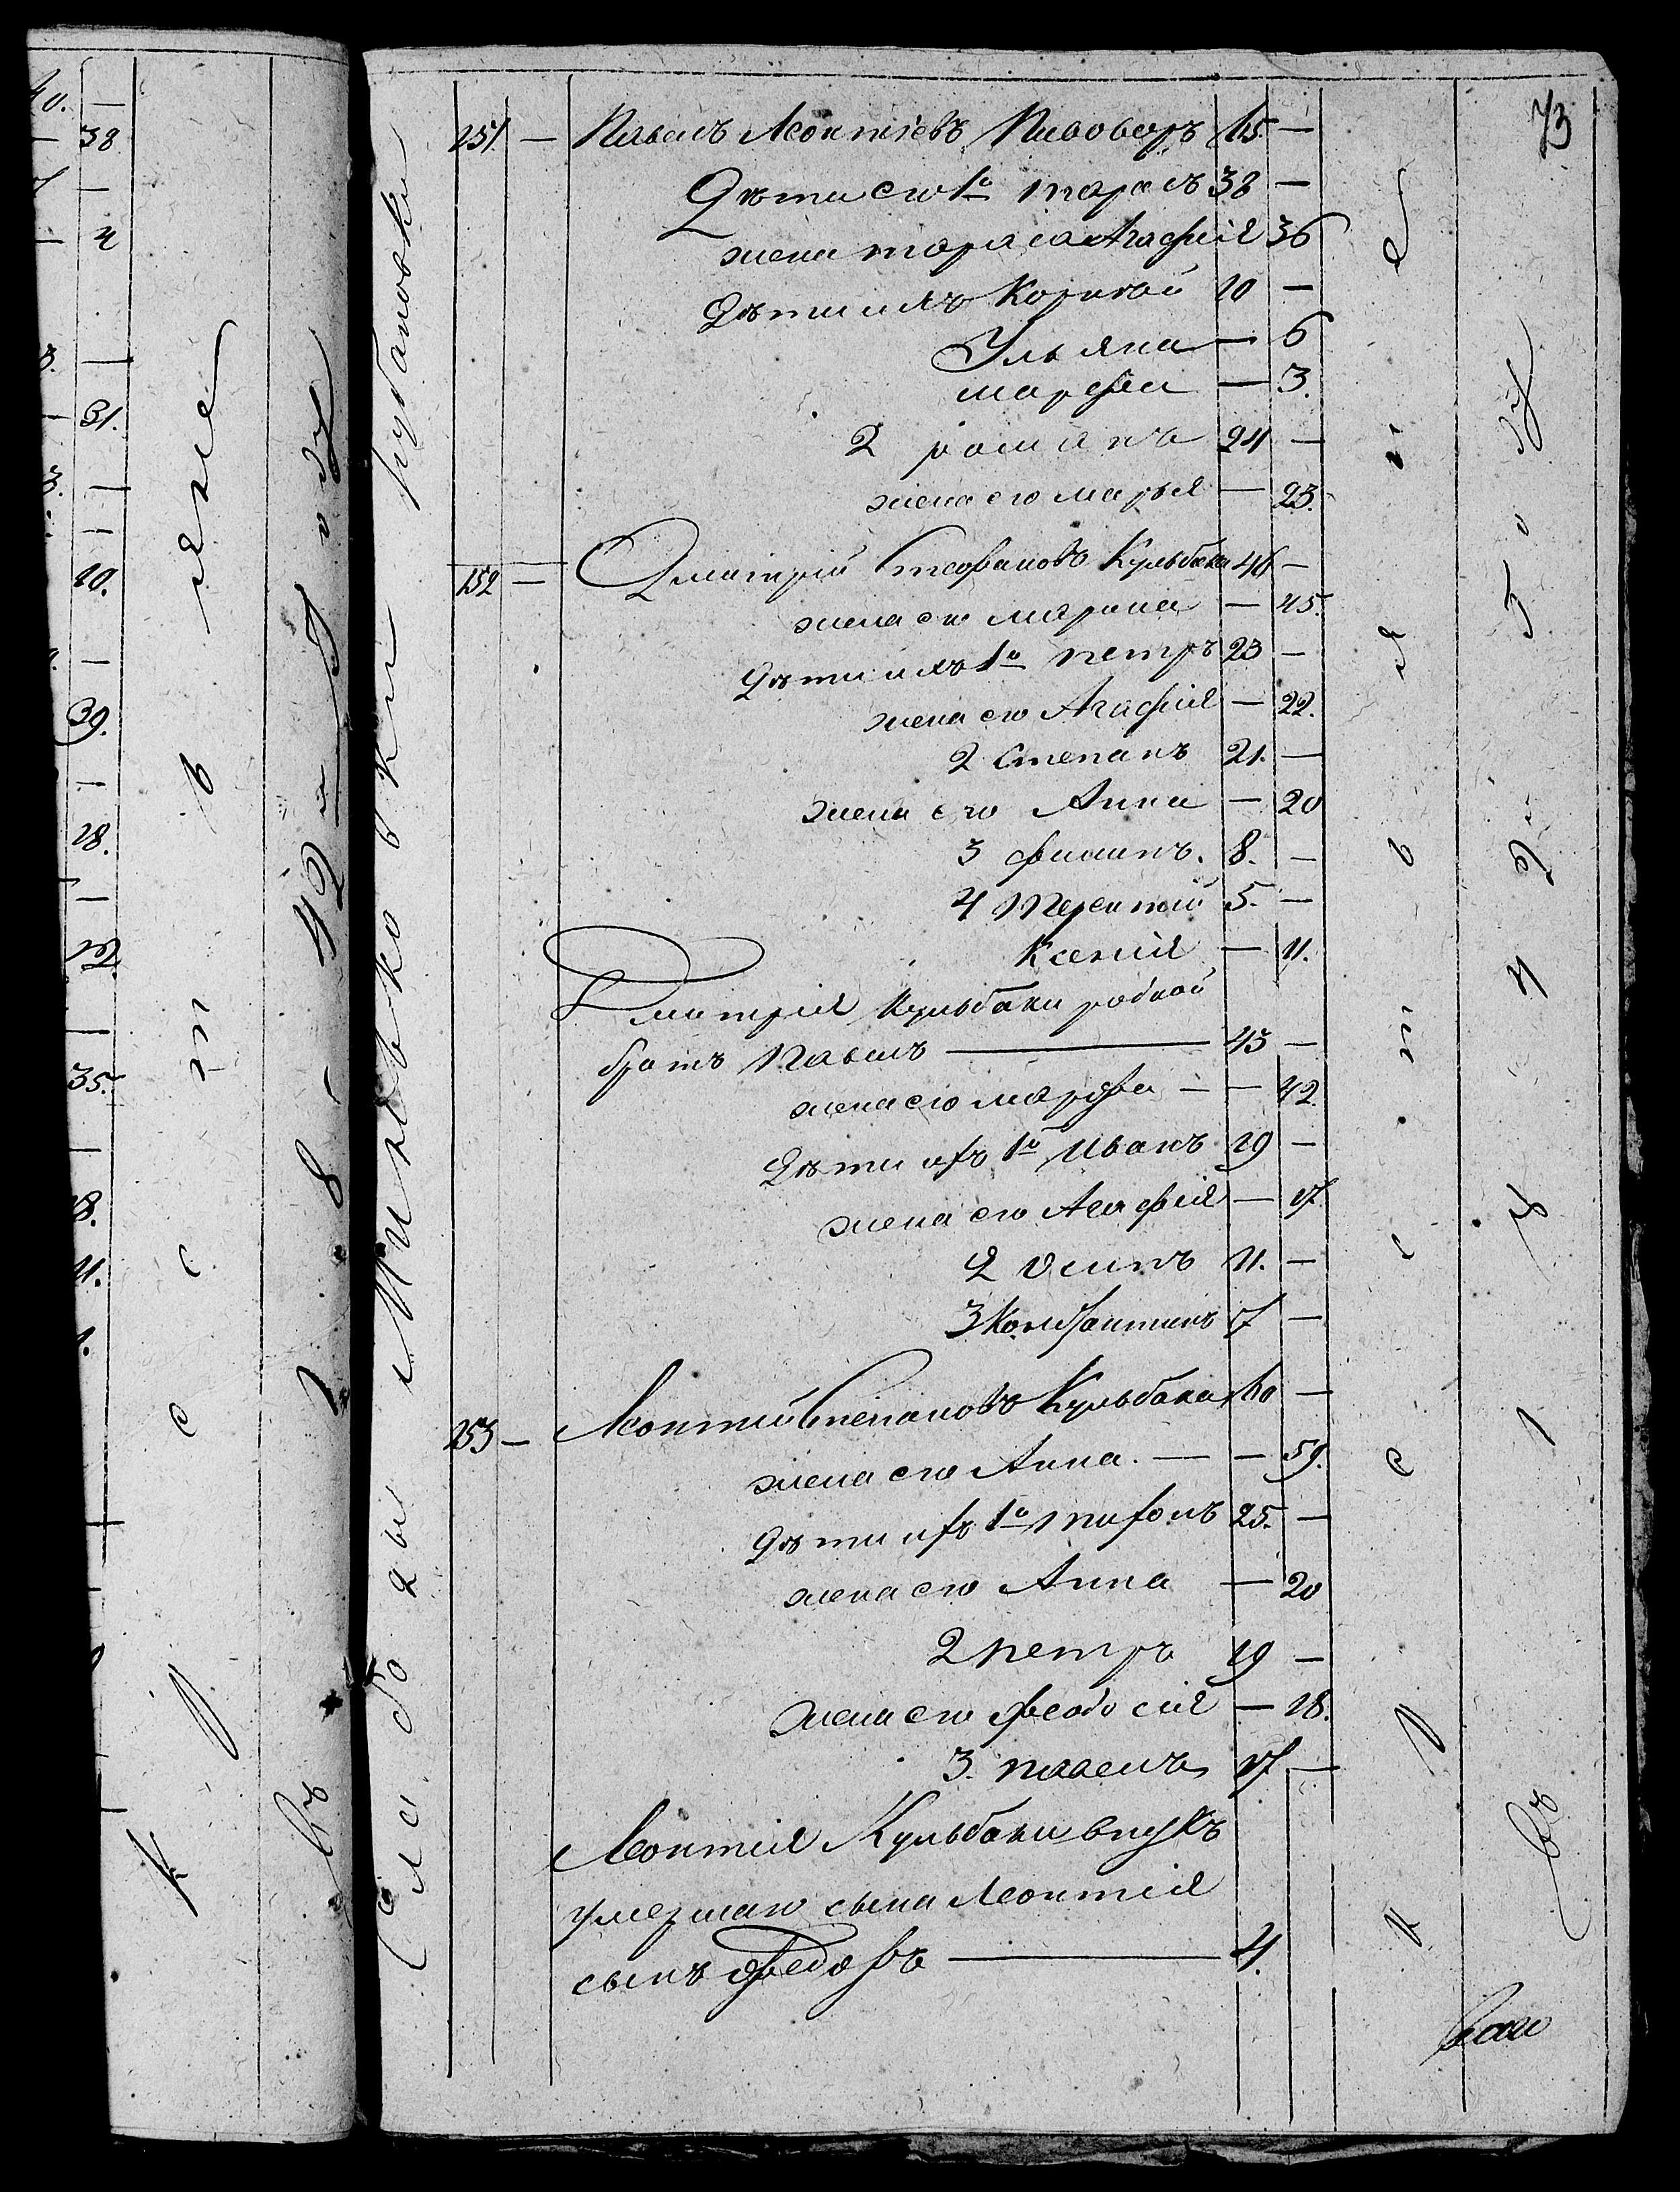 73
251. — Павелъ Леонтіевъ Пивоваръ 65 —
Дѣти его 1й Тарасъ 38 —
жена Тараса Агафія 36
Дѣти ихъ Корнѣй 10 —
Ульяна — 6
Марфа — 3.
2 Романъ 24 —
жена его Марья — 23.
252 — Дмитрій Стефановъ Кульбака 46 —
жена его Марина — 45.
Дѣти ихъ 1й Петръ 23 —
жена его Агафія — 22.
2 Степанъ 21. —
жена его Анна — 20
3 Филипъ. 8. —
4 Терентій 5. —
Ксенія — 11.
Дмитрія Кульбаки родной
братъ Павелъ — 43 —
жена его Марфа — — 42.
Дѣти ихъ 1й Иванъ 19 —
жена его Агафія — 17
2 Осипъ 11. —
3 Константинъ 7 —
253 — Леонтій Степановъ Кульбака 60 —
жена его Анна. — — 59.
Дѣти ихъ 1й Трифонъ 25. —
жена его Анна — 20
2 Петръ 19 —
жена его Феодосія — 18.
3. Павелъ 17 —
Леонтія Кульбаки внукъ
умершаго сына Леонтія
сынъ Федоръ — 4.
Слободы
крестьяне
Въ 1842 Году